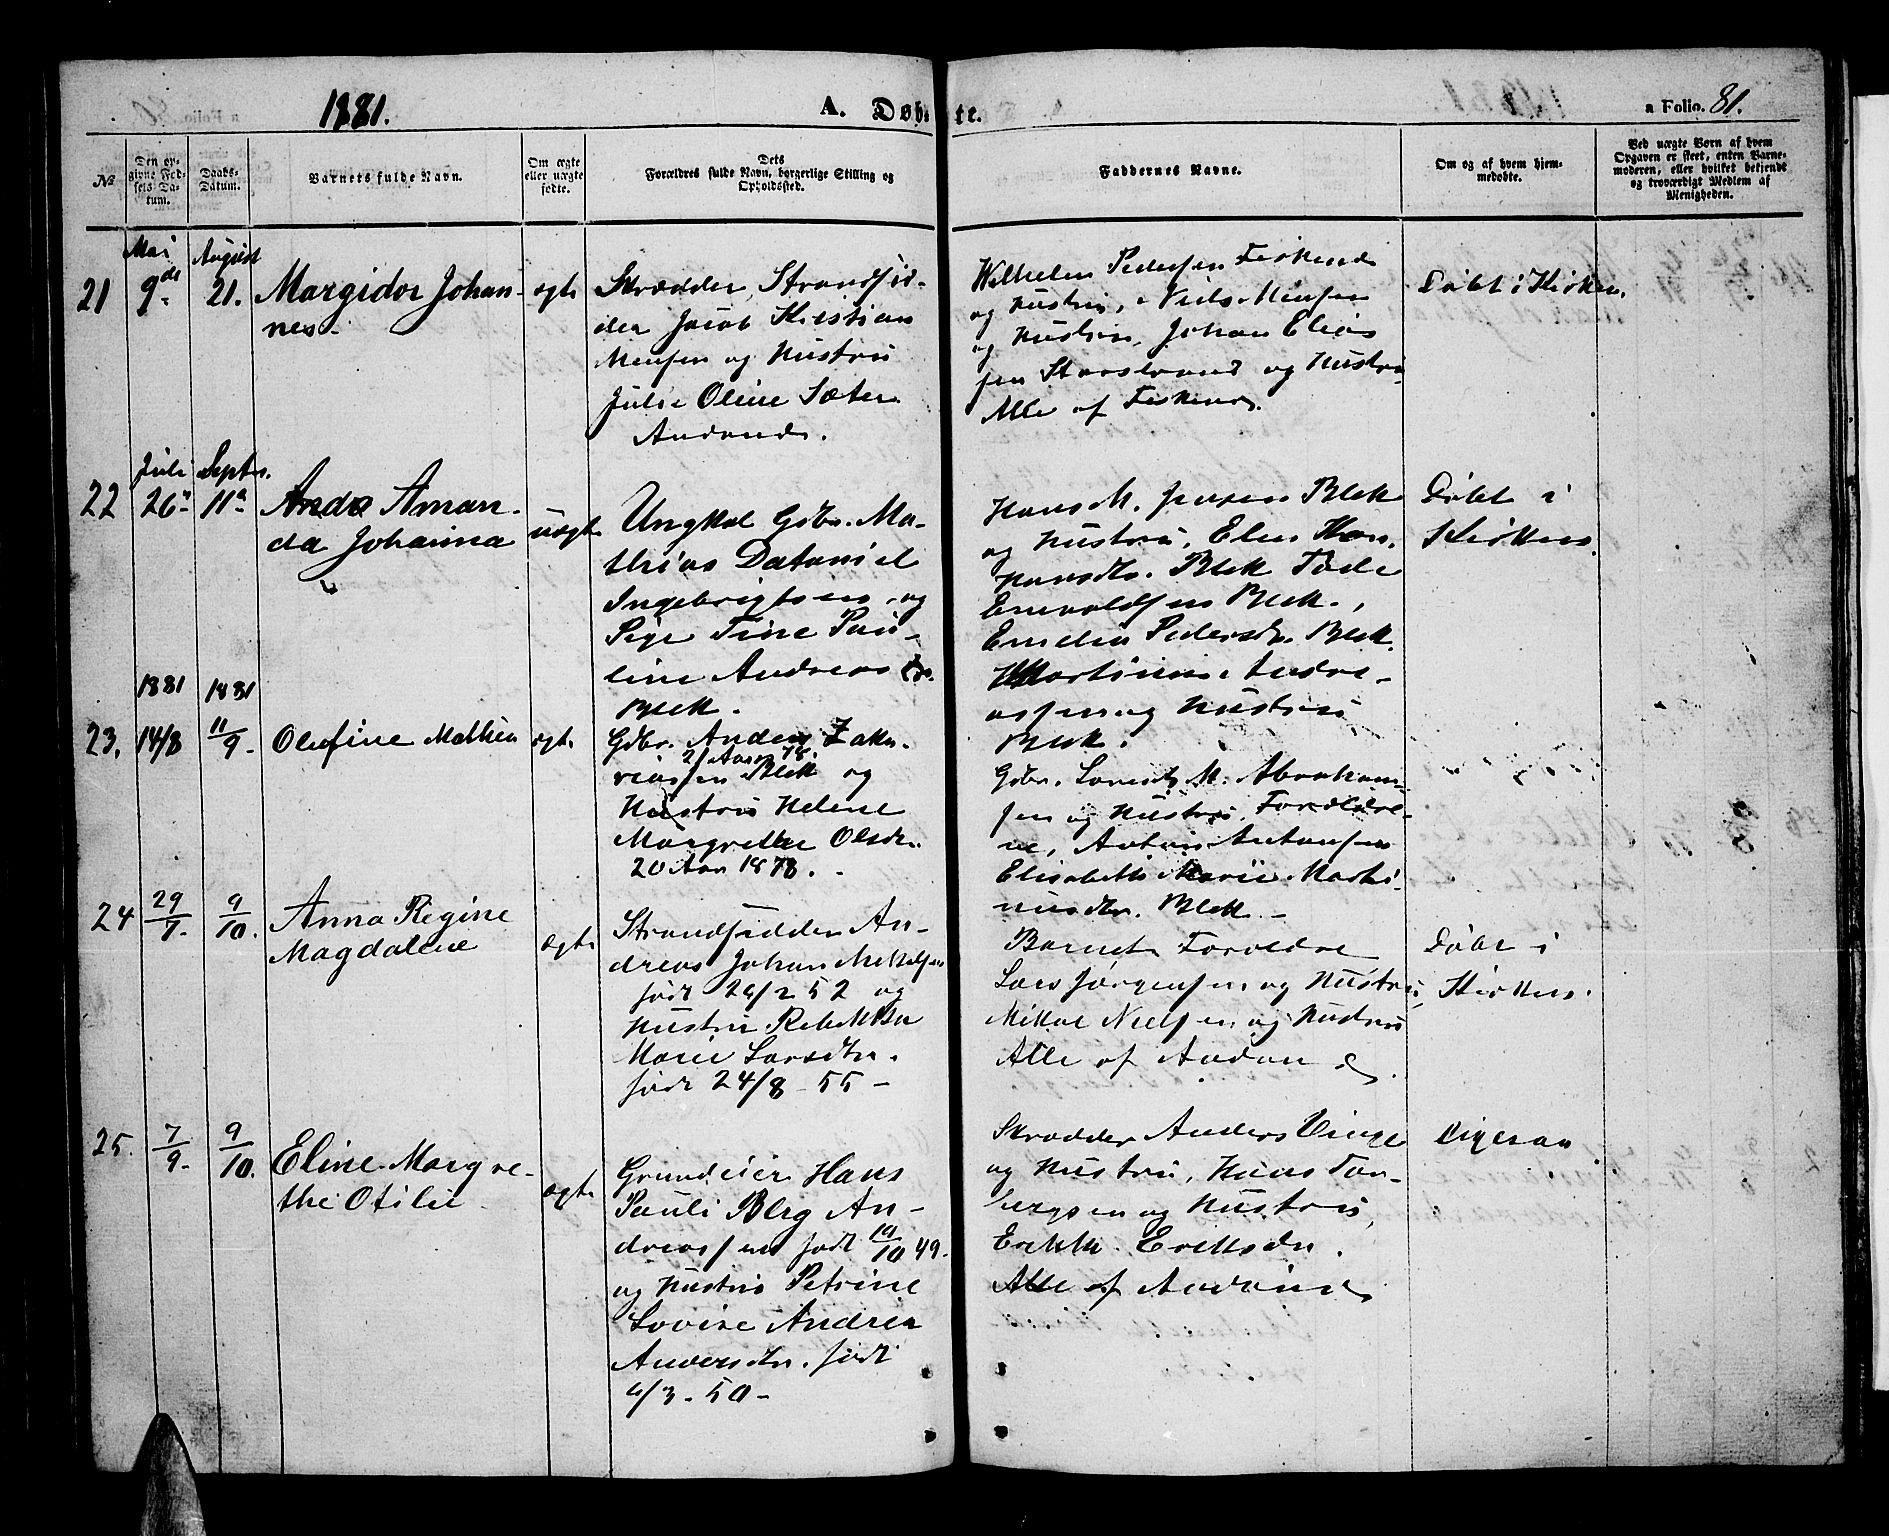 1881.
A. Døbte.
a Folio. 81.
№
Den opgivne Fødsels Datum.
Daabs-Datum.
Barnets fulde Navn.
Om ægte eller uægte fødte.
Dets Forældres fulde Navn, borgerlige Stilling og Opholdssted.
Faddernes Navne.
Om og af hvem hjemmedøbte.
Ved uægte Børn af hvem Opgaven er skeet, enten Barnemoderen, eller hvilket betjendt og troværdigt Medlem af Menigheden.
21
Mai
9de
August
21.
Margidor Johan-
nes.
ægte
Skrædder, Strandsid-
der Jacob Kristian
Monsen og Hustru
Julie Oline Sæter
Andende.
Wilhelm Pedersen Fiskende
og Hustru, Niels Monsen
og Hustru, Johan Elias
sen Storstrand og Hustru
Alle af Fiskenes.
Døbt i Kirken.
22
Juli
26
Septbr.
11
Anda Aman-
da Johanna
uægte
Ungkal Gdbr. Ma-
thias Dataniel
Ingebrigtsen og
Pige Tine Pau-
line Andreasdtr.
Blek.
Hans M. Jensen Blek
og Hustru, Elen Han.
Hansdtr. Blek Tode
Enevoldsen Blek.,
Emelia Pedersdtr. Blek.
Martinus Andre-
assen og Hustru
Blek.
Døbt i
Kirken.
1881
1881
23.
14/8
11/9
Olufine Mathea
ægte
Gdbr. Anders Zaka-
21 Aar 78
riassen Blek og
Hustru Helene
Margrethe Olsdr.
20 Aar 1878.
Gdbr. Lorents M. Abraham-
sen og Hustru, Forældre-
ne, Anton Antonsen
Elisabeth Marie Marti-
nusdtr. Blek.
24
29/7
9/10.
Anna Regine
Magdalene
ægte
Strandsidder An-
dreas Johan Mikkelsen
født 24/2 52 og
Hustru Rebekka
Marie Larsdtr.
født 24/8 - 55 -
Barnets Forældre
Lars Jørgensen og Hustru
Mikal Nielsen og Hustru
Alle af Andøen
Døbt i
Kirken.
25.
7/9.
9/10.
Eline Margre-
the Otilie
ægte
Grundeier Hans
Pauli Berg An-
dreassen født 19/10 49.
og Hustru Petrine
Lovise Andrea
Andersdtr. født
6/3 - 50 -
Skrædder Anders Vinge
og Hustru, Hans Tor-
bergsen og Hustru,
Erikke Eriksdtr.
Alle af
Ligesaa